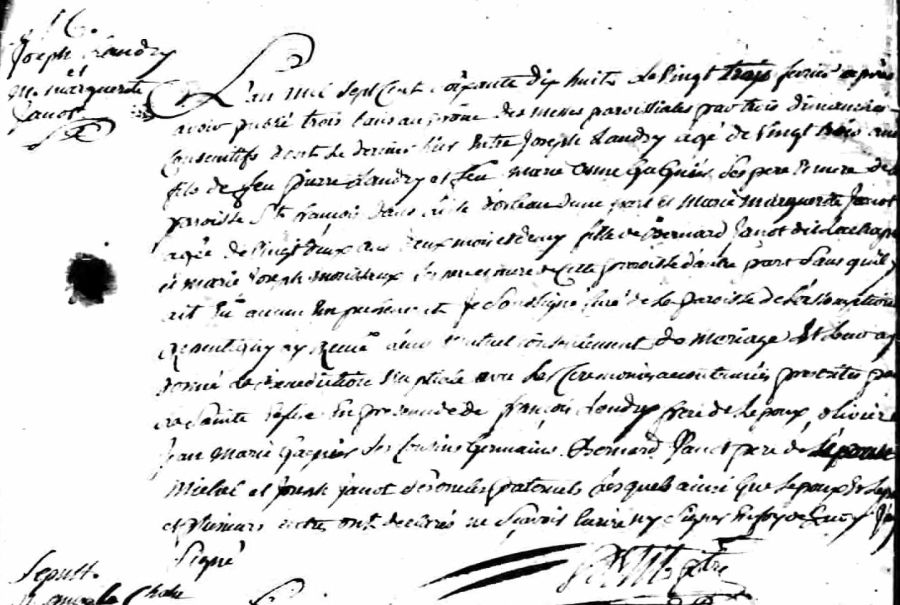 Joseph Landry
et
M. marguerite
Janot
L'an mil sept cent soixante dix huite le vingt trois fevrier après
avoir publié trois bans au prône des messes paroissiales par trois dimanches
consecutifs dont le dernier entre Joseph Landry agé de vingt trois ans
fils de feu pierre Landry et feu marie Gagniés ses pere et mere de
paroisse St. françois dans d'une part et Marie marguerite Janot
agée de vingt deux ans deux mois et demy fille de Bernard Janot dit Lachapelle
et marie Joseph ses pere et mere de cette paroisse d'autre part sans qu'il y
ait eu aucun empêchement Je soussigné curé de la paroisse de l'assomption
de repentigny ay mutuel consentement de mariage et leur ay
donné la benediction nuptiale avec les ceremonies accoutumées
la sainte eglise en presence de françois Landry frere de l'epoux, olivier
Jean Marie Gagnier ses cousins germains Bernard Janot pere de l'epouse
Michel et Joseph janot ses oncles paternels lesquels ainsi que l'epoux et l'epouse
et plusieurs autres ont declarés ne savoir ecrire ny signer en foy de quoy J'ay
signé
Sepult.